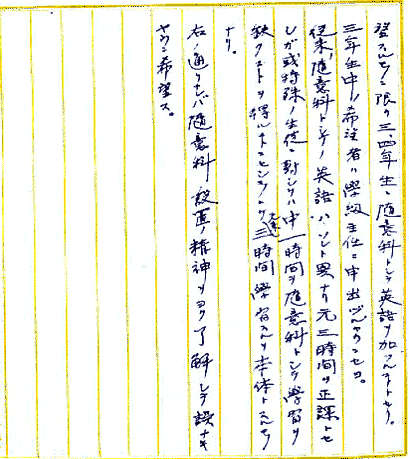 望スルモノニ限リ三、四年生ニ随意科トシテ英語ヲ加フルコトトセリ。
三年生中ノ希望者ハ學級主任ニ申出ヅルヤウニセヨ。
従来ノ随意科トシテノ英語ハ、ソレト異ナリ元三時間ヲ正課トセ
シガ或特殊ノ生徒ニ対シテハ中一時間ヲ随意科トシテ學習ヲ
缺クコトヲ得ルコトトセシモノ三時間學習スルヲ本体トスルモノ
ナリ。
右ノ通リナレバ随意科設置ノ精神ヲヨク了解シテ誤ナキ
ヤウニ希望ス。